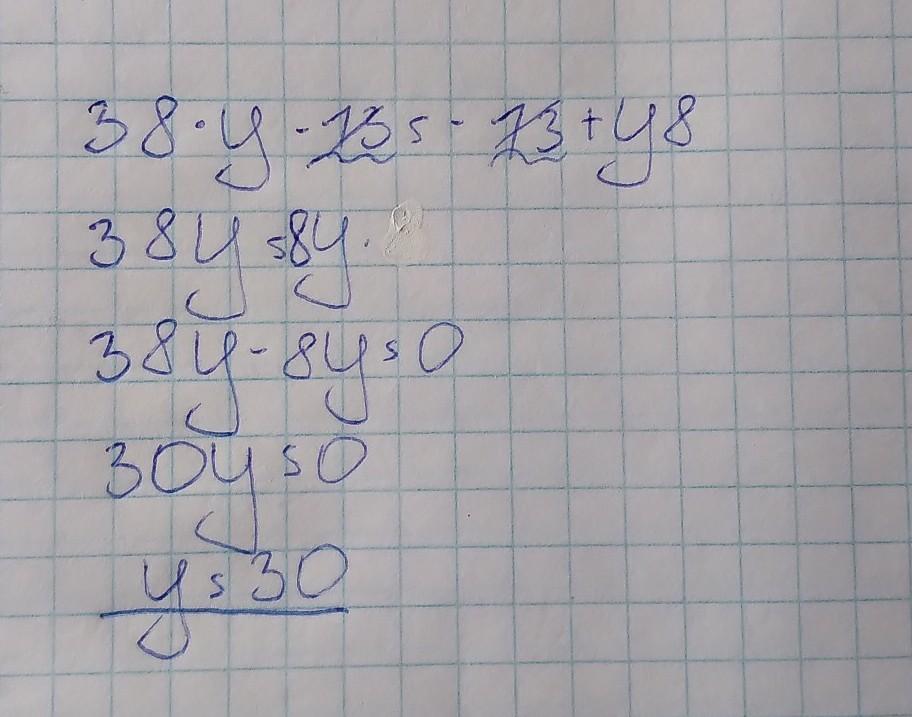 38·y - 73 = - 73 + y8
38y = 8y.
38y - 8y = 0
30y = 0
y = 30